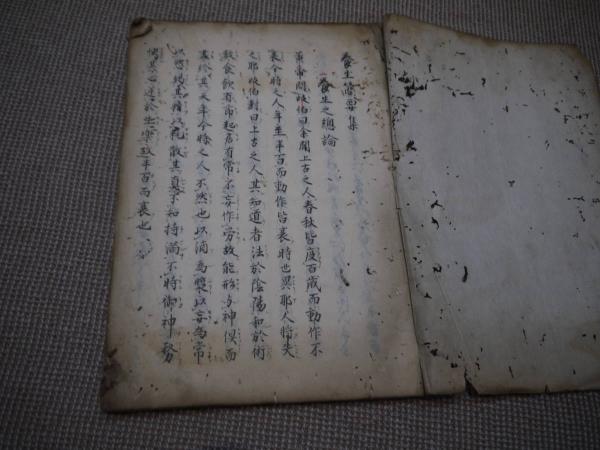 養生簡要集
養生之總論
黃帝問岐伯曰余聞上古之人春秋皆度百歲而動作不
衰今時之人年至半百而動作皆衰時世異耶人將失
之耶岐伯對曰上古之人其知道者法於陰陽和於術
數食飲有節起居有常不妄作勞故能形与神俱而
盡終其天年今時之人不然也以酒為漿以妄為常
以慾竭其精以耗散其真不知持滿不時御神務
快其心逆於生樂故半百而衰也